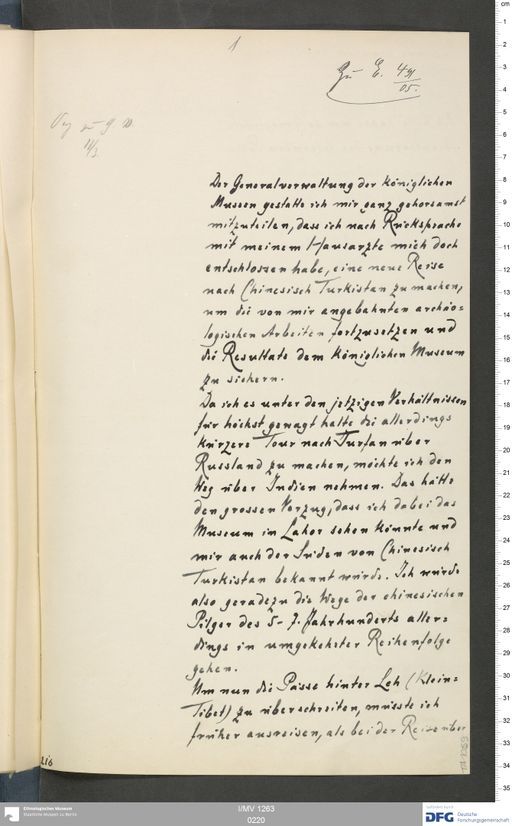 1
Zu E. 491/05.
Der Generalverwaltung der Königlichen
Museen gestatte ich mir ganz gehorsamst
mitzuteilen, dass ich nach Rücksprache
mit meinem Hausarzte mich doch
entschlossen habe, eine neue Reise
nach Chinesisch Turkistan zu machen,
um die von mir angebahnten archäo=
logischen Arbeiten fortzusetzen und
die Resultate dem Königlichen Museum
zu sichern.
Da ich es unter den jetzigen Verhältnissen
für höchst gewagt halte die allerdings
kürzere Tour nach Turfan über
Russland zu machen, möchte ich den
Weg über Indien nehmen. Das hätte
den grossen Vorzug, dass ich dabei das
Museum in Lahor sehen könnte und
mir auch der Süden von Chinesisch
Turkistan bekannt würde. Ich würde
also geradezu die Wege der chinesischen
Pilger des 5-7. Jahrhunderts aller=
dings in umgekehrter Reihenfolge
gehen.
Um nun die Pässe hinter Leh (Klein=
Tibet) zu überschreiten, müsste ich
früher ausreisen, als bei der Reise über
216
Ethnologisches Museum
Staatliche Museen zu Berlin
I/MV 1263
0220
gefördert durch
DFG Deutsche
Forschungsgemeinschaft